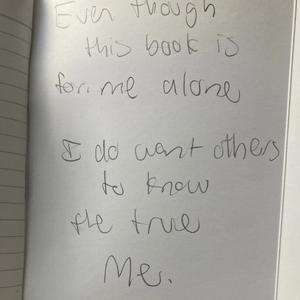 Even though
this book is
for me alone
I do want others
to know
the true
Me.